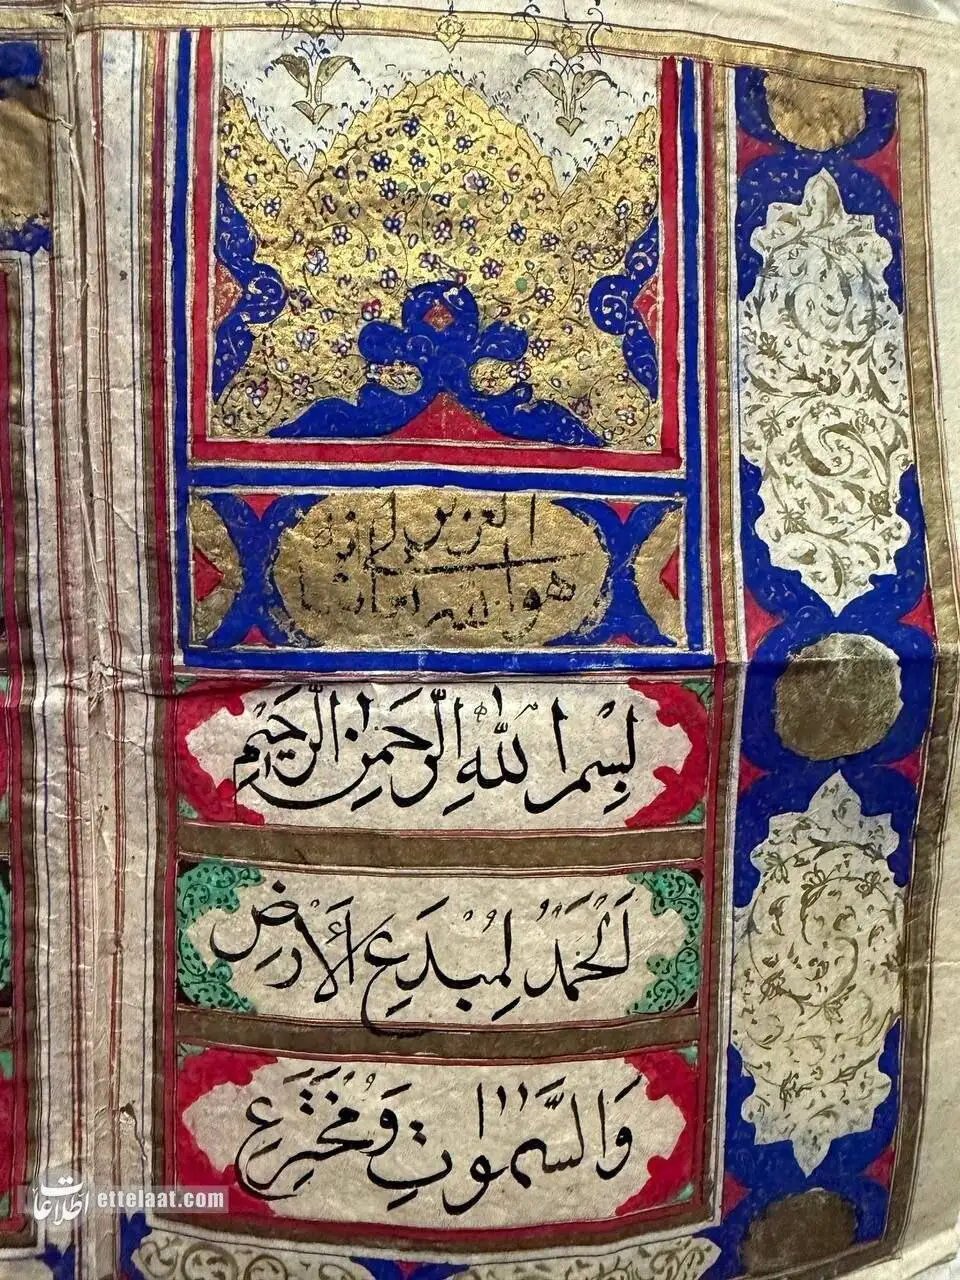 العزيز
هو الله تعالى شانه
بِسْمِ اللهِ الرَّحْمنِ الرَّحِيْمِ
اَلْحَمْدُ لِمُبْدَعِ الْأَرْضِ
وَالسَّمٰوٰتِ وَمُخْتَرِعِ
اطلاعات ettelaat.com